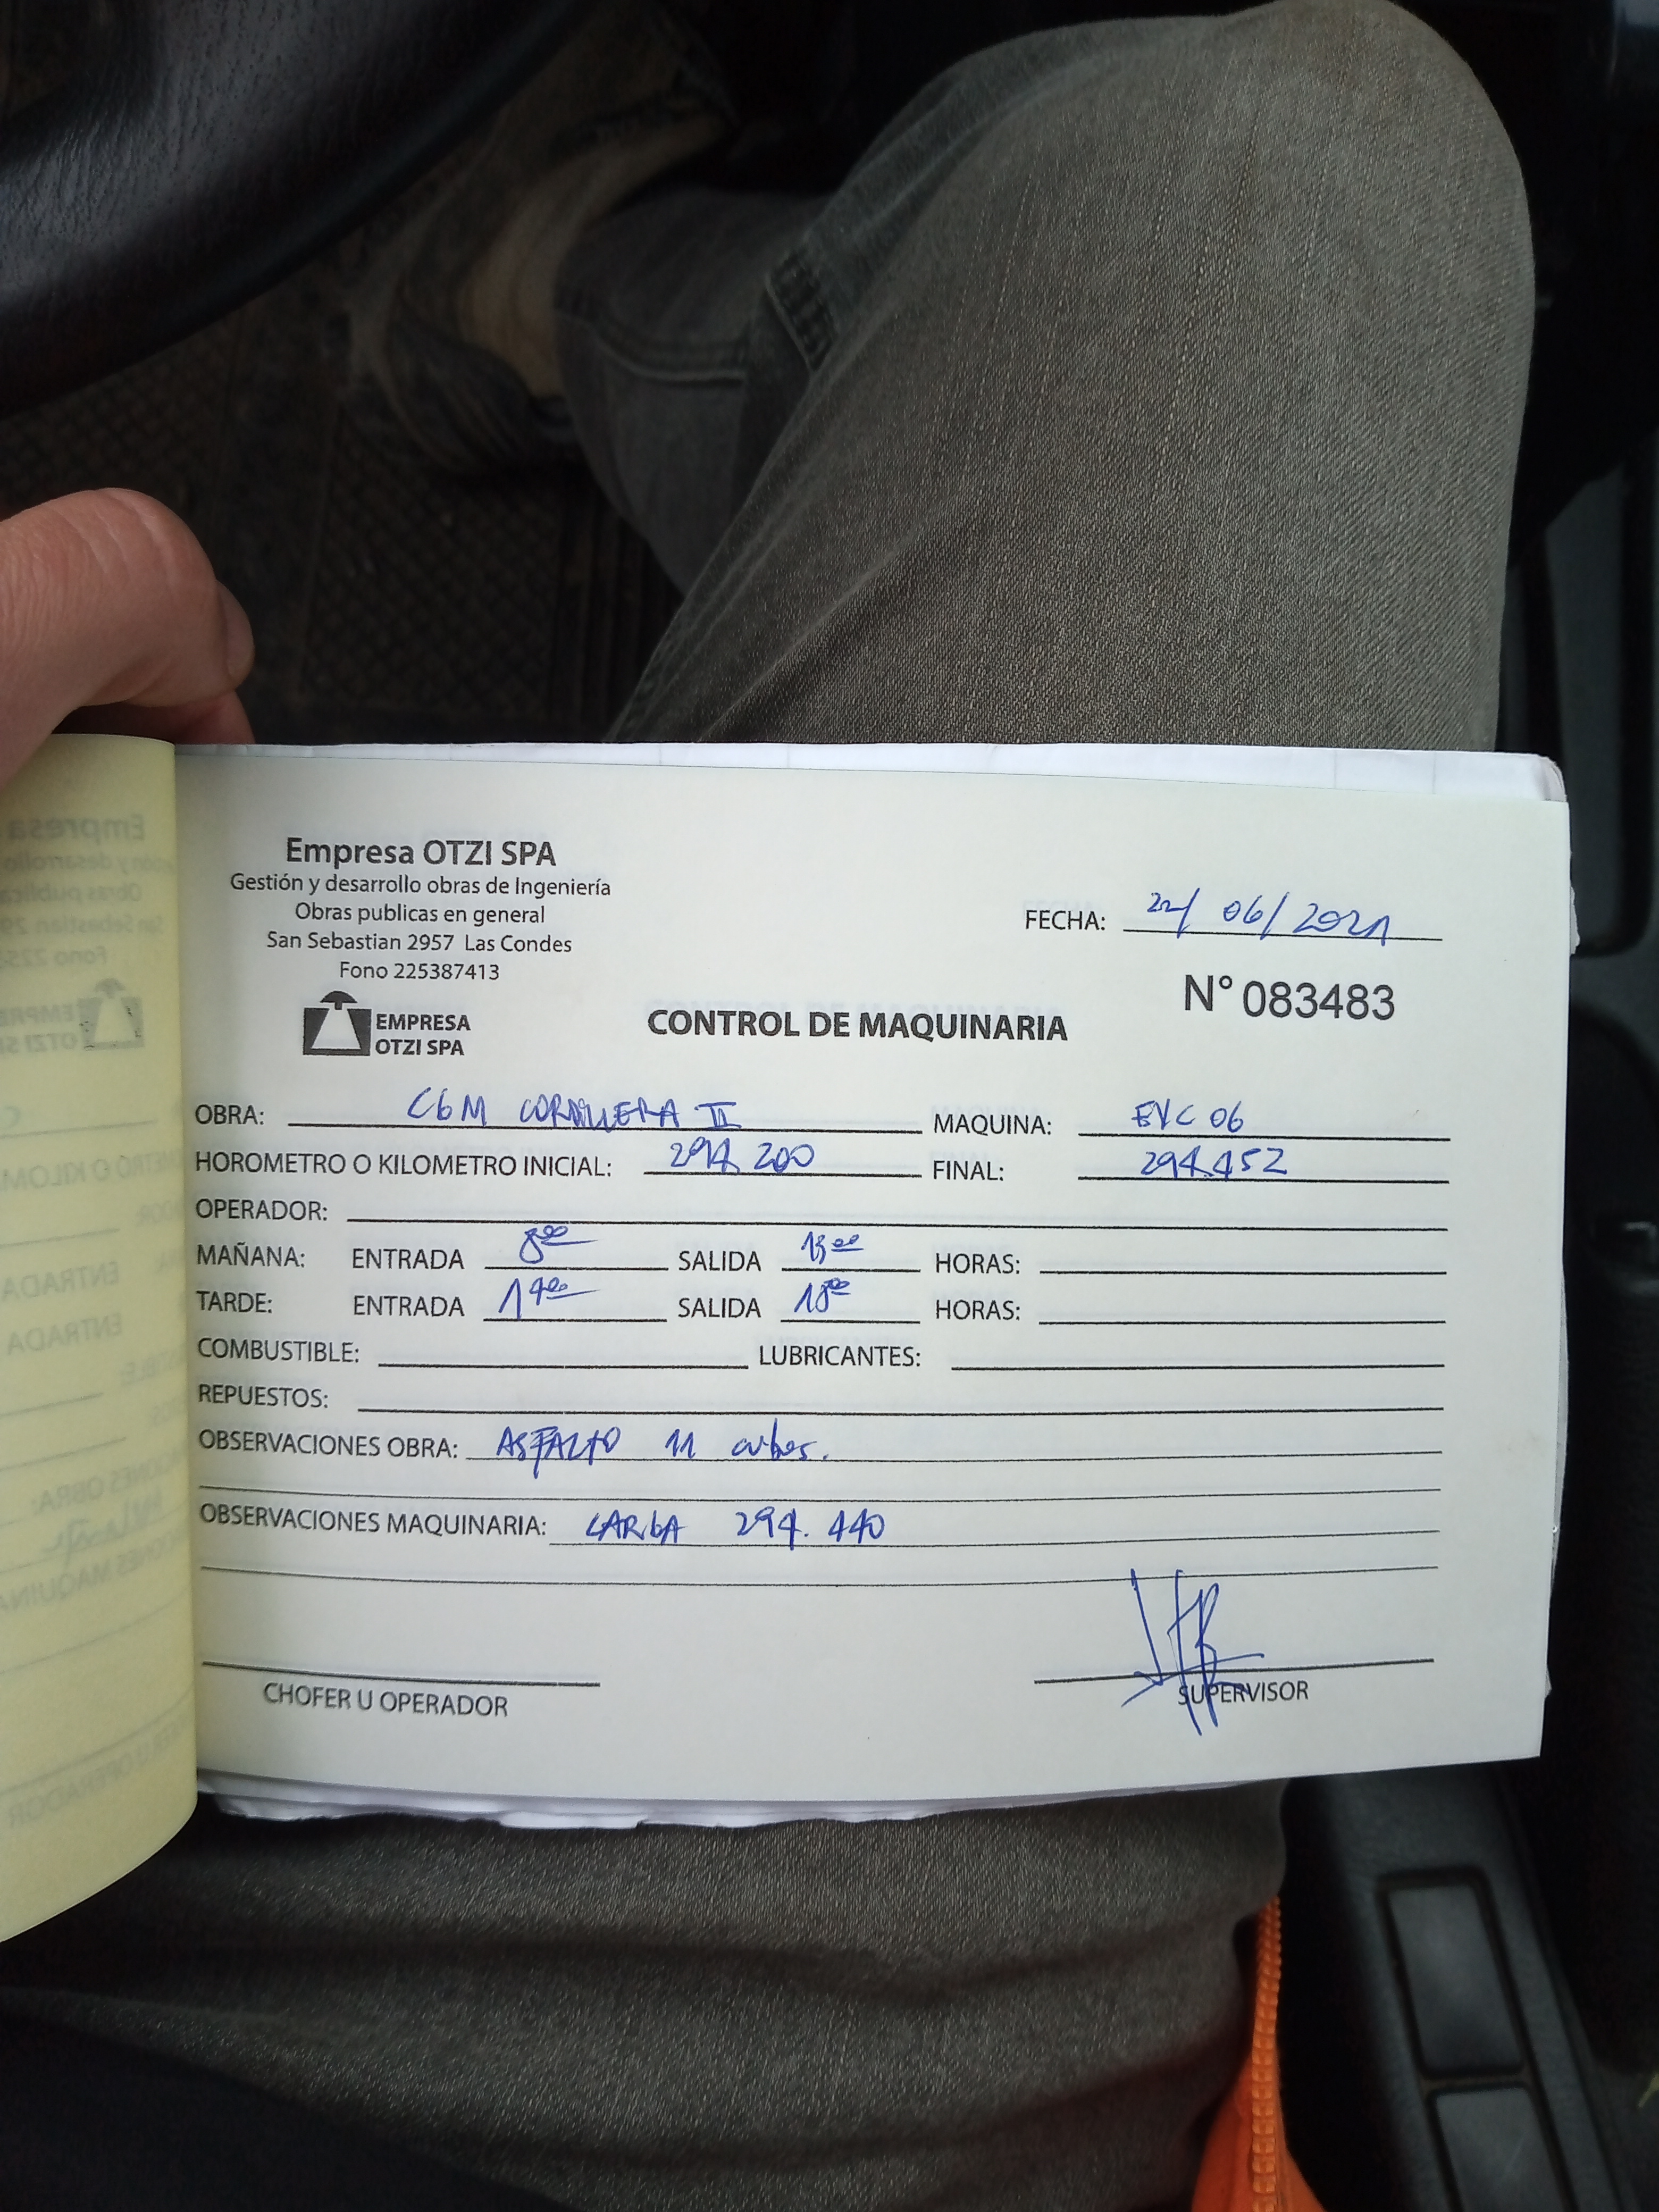 Empresa OTZI SPA
Gestión y desarrollo obras de Ingeniería
Obras publicas en general
San Sebastian 2957 Las Condes
Fono 225387413
EMPRESA
OTZI SPA
FECHA: 22/06/2021
N° 083483
CONTROL DE MAQUINARIA
OBRA: CGM CORDILLERA II MAQUINA: EVC 06
HOROMETRO O KILOMETRO INICIAL: 294.200 FINAL: 294.452
OPERADOR:
MAÑANA: ENTRADA 8:00 SALIDA 13:00 HORAS:
TARDE: ENTRADA 14:00 SALIDA 18:00 HORAS:
COMBUSTIBLE: LUBRICANTES:
REPUESTOS:
OBSERVACIONES OBRA: ASFALTO 11 cubos.
OBSERVACIONES MAQUINARIA: CARGA 294.440
CHOFER U OPERADOR
SUPERVISOR